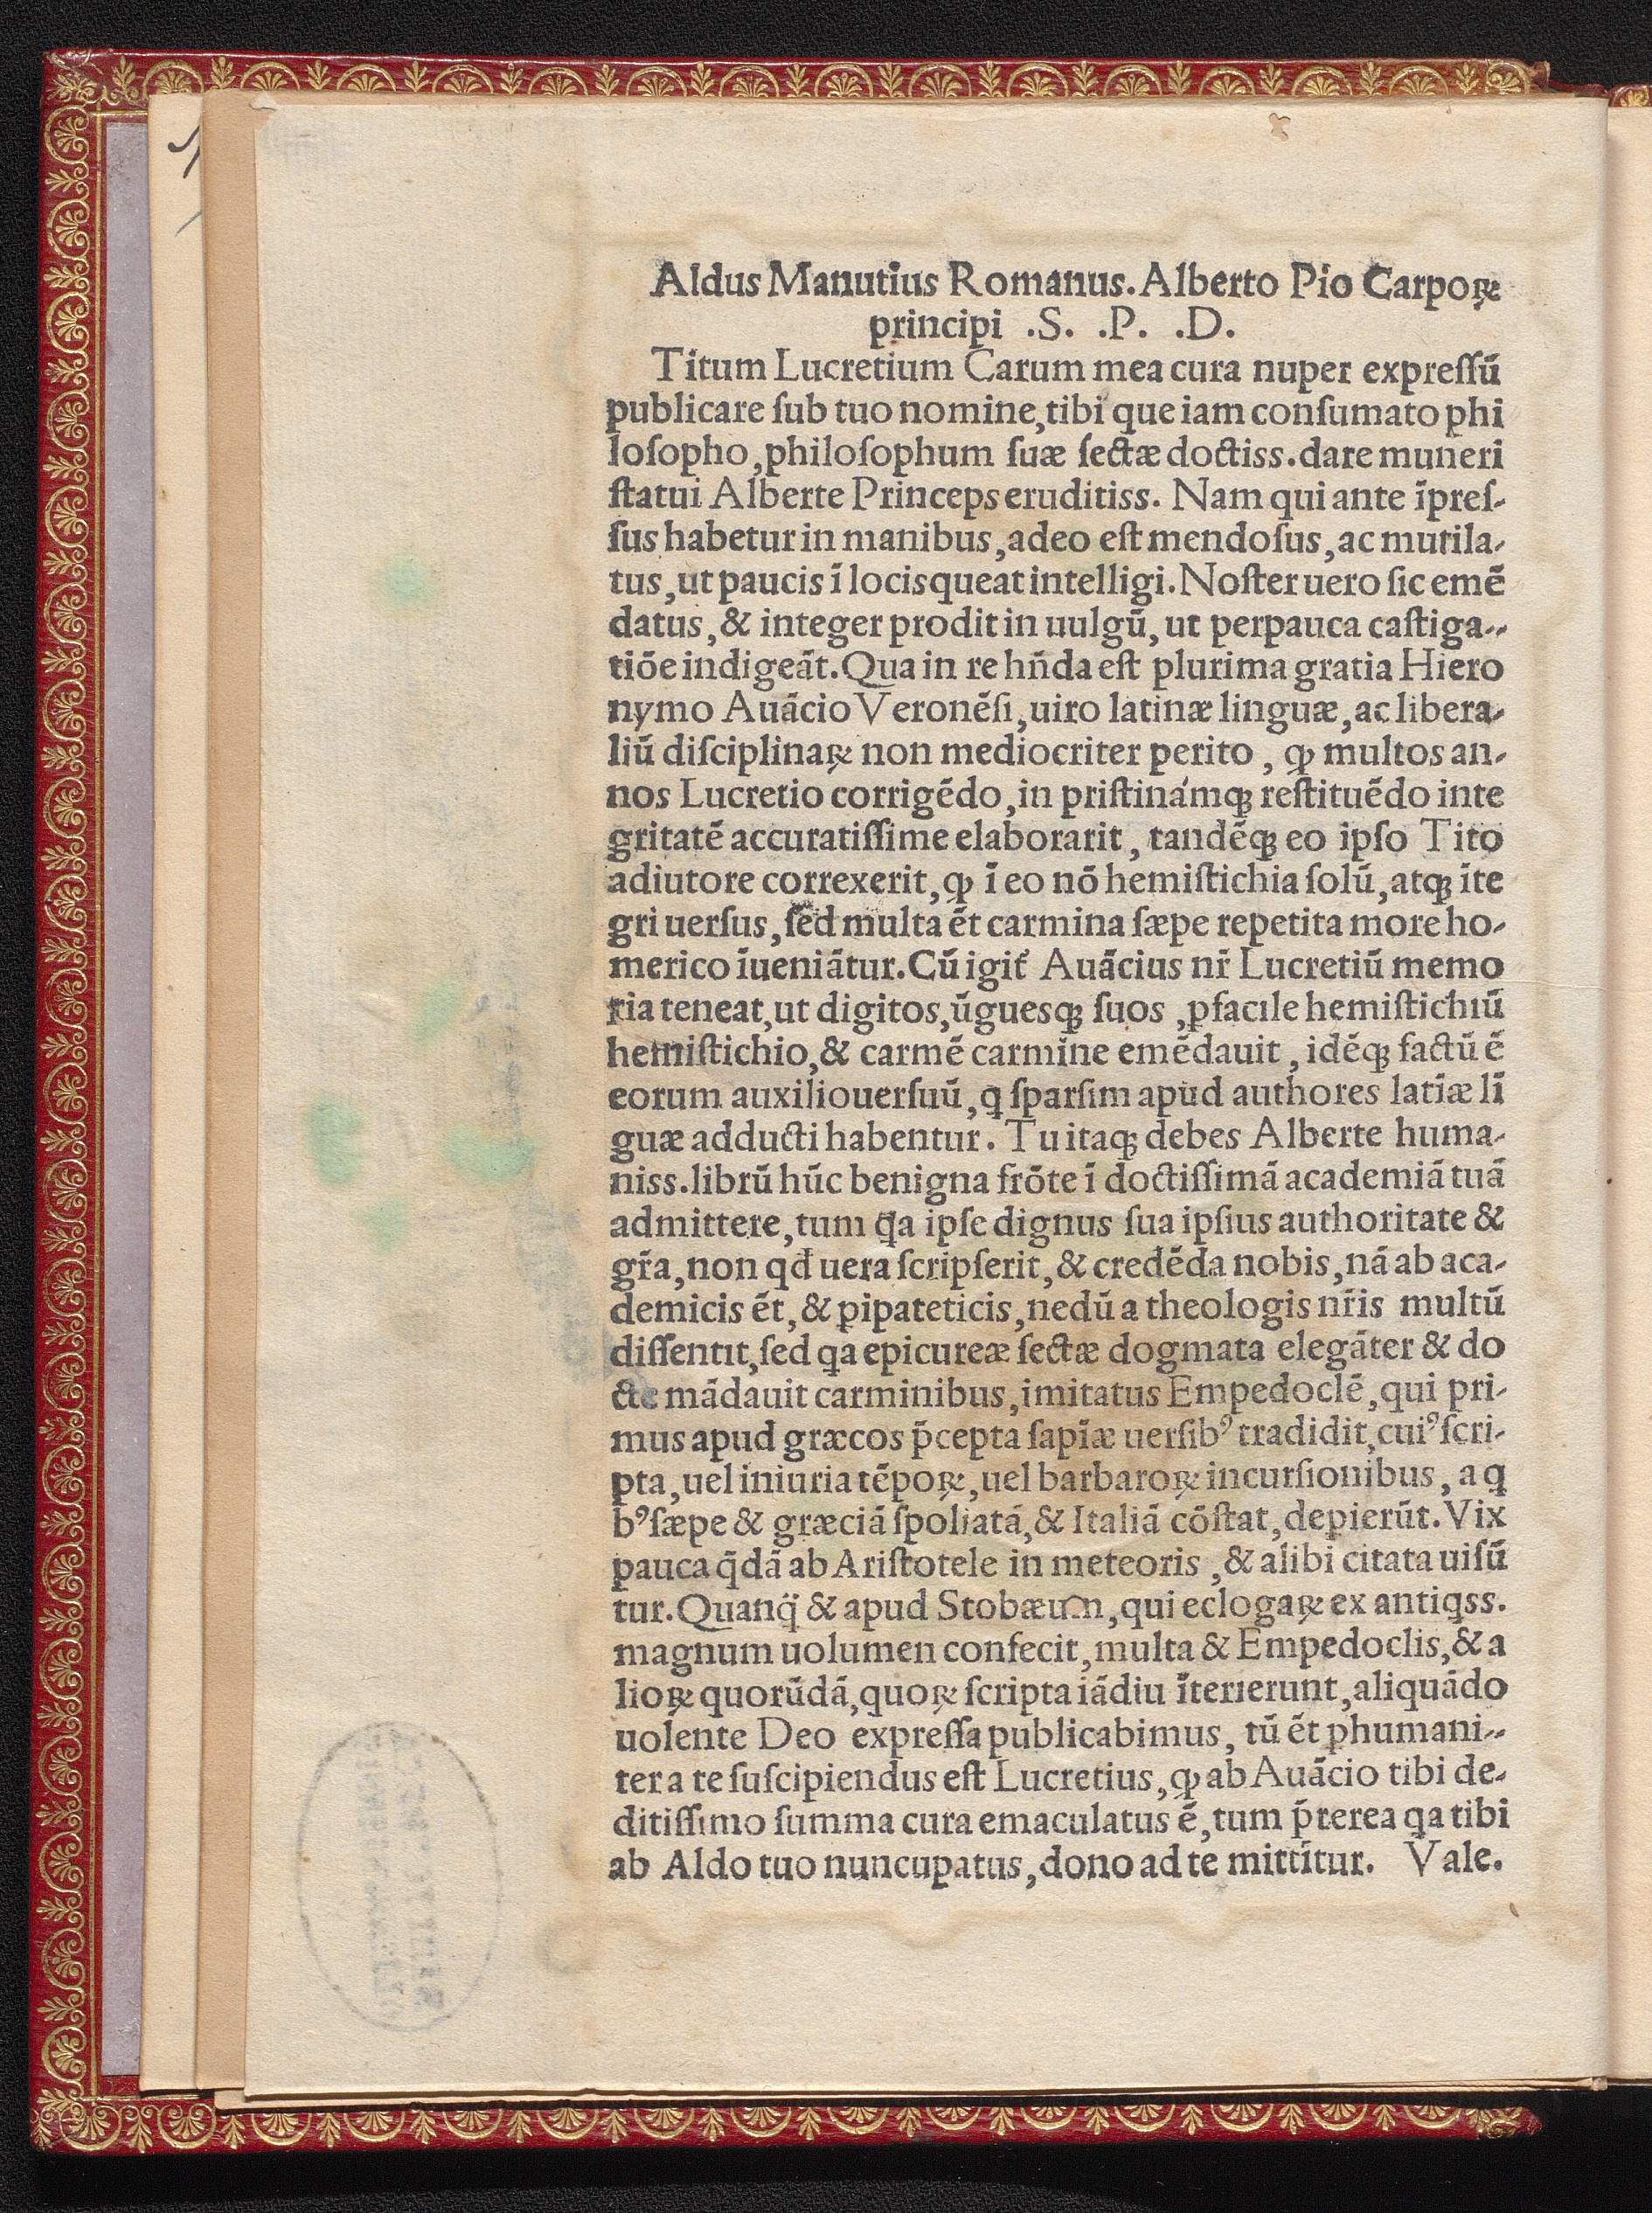 Aldus Manutius Romanus. Alberto Pio Carpoꝝ
principi .S. .P. .D.
Titum Lucretium Carum mea cura nuper expreſſũ
publicare ſub tuo nomine, tibi que iam conſumato phi
loſopho, philoſophum ſuæ ſectæ doctiss. dare muneri
ſtatui Alberte Princeps eruditiss. Nam qui ante ĩpreſ-
ſus habetur in manibus, adeo eſt mendoſus, ac mutila-
tus, ut paucis ĩ locis queat intelligi. Noſter uero ſic emẽ
datus, & integer prodit in uulgũ, ut perpauca caſtiga-
tiõe indigeãt. Qua in re hñda eſt plurima gratia Hiero
nymo Auãcio Veronẽſi, uiro latinæ linguæ, ac libera-
liũ diſciplinaꝝ non mediocriter perito, ꝙ multos an-
nos Lucretio corrigẽdo, in priſtinámqꝫ reſtituẽdo inte
gritatẽ accuratiſſime elaborarit, tandẽqꝫ eo ipſo Tito
adiutore correxerit, ꝙ ĩ eo nõ hemiſtichia ſolũ, atqꝫ ĩte
gri uerſus, ſed multa ẽt carmina ſæpe repetita more ho-
merico ĩueniãtur. Cũ igit᷑ Auãcius nr̃ Lucretiũ memo
ria teneat, ut digitos, ũguesqꝫ ſuos, ꝑfacile hemiſtichiũ
hemiſtichio, & carmẽ carmine emẽdauit, idẽqꝫ factũ ẽ
eorum auxilio uerſuũ, q̃ ſparſim apud authores latĩæ lĩ
guæ adducti habentur. Tu itaqꝫ debes Alberte huma-
niss. librũ hũc benigna frõte ĩ doctiſſimã academiã tuã
admittere, tum q̃a ipſe dignus ſua ipſius authoritate &
gr̃a, non qđ uera ſcripſerit, & credẽda nobis, nã ab aca-
demicis ẽt, & ꝑipateticis, nedũ a theologis nr̃is multũ
diſſentit, ſed qa epicureæ ſectæ dogmata elegãter & do
cte mãdauit carminibus, imitatus Empedoclẽ, qui pri-
mus apud græcos p̃cepta ſapĩæ uerſibꝰ tradidit, cuiꝰ ſcri-
pta, uel iniuria tẽpoꝝ, uel barbaroꝝ incurſionibus, a q
bꝰ ſæpe & græciã ſpoliatã, & Italiã cõſtat, deꝑierũt. Vix
pauca q̃dã ab Ariſtotele in meteoris, & alibi citata uiſũ
tur. Quanq̃ & apud Stobæum, qui eclogaꝝ ex antiqss.
magnum uolumen confecit, multa & Empedoclis, & a
lioꝝ quorũdã, quoꝝ ſcripta iãdiu ĩterierunt, aliquãdo
uolente Deo expreſſa publicabimus, tũ ẽt ꝑhumani-
ter a te ſuſcipiendus eſt Lucretius, ꝙ ab Auãcio tibi de-
ditiſſimo ſumma cura emaculatus ẽ, tum p̃terea qa tibi
ab Aldo tuo nuncupatus, dono ad te mittitur. Vale.